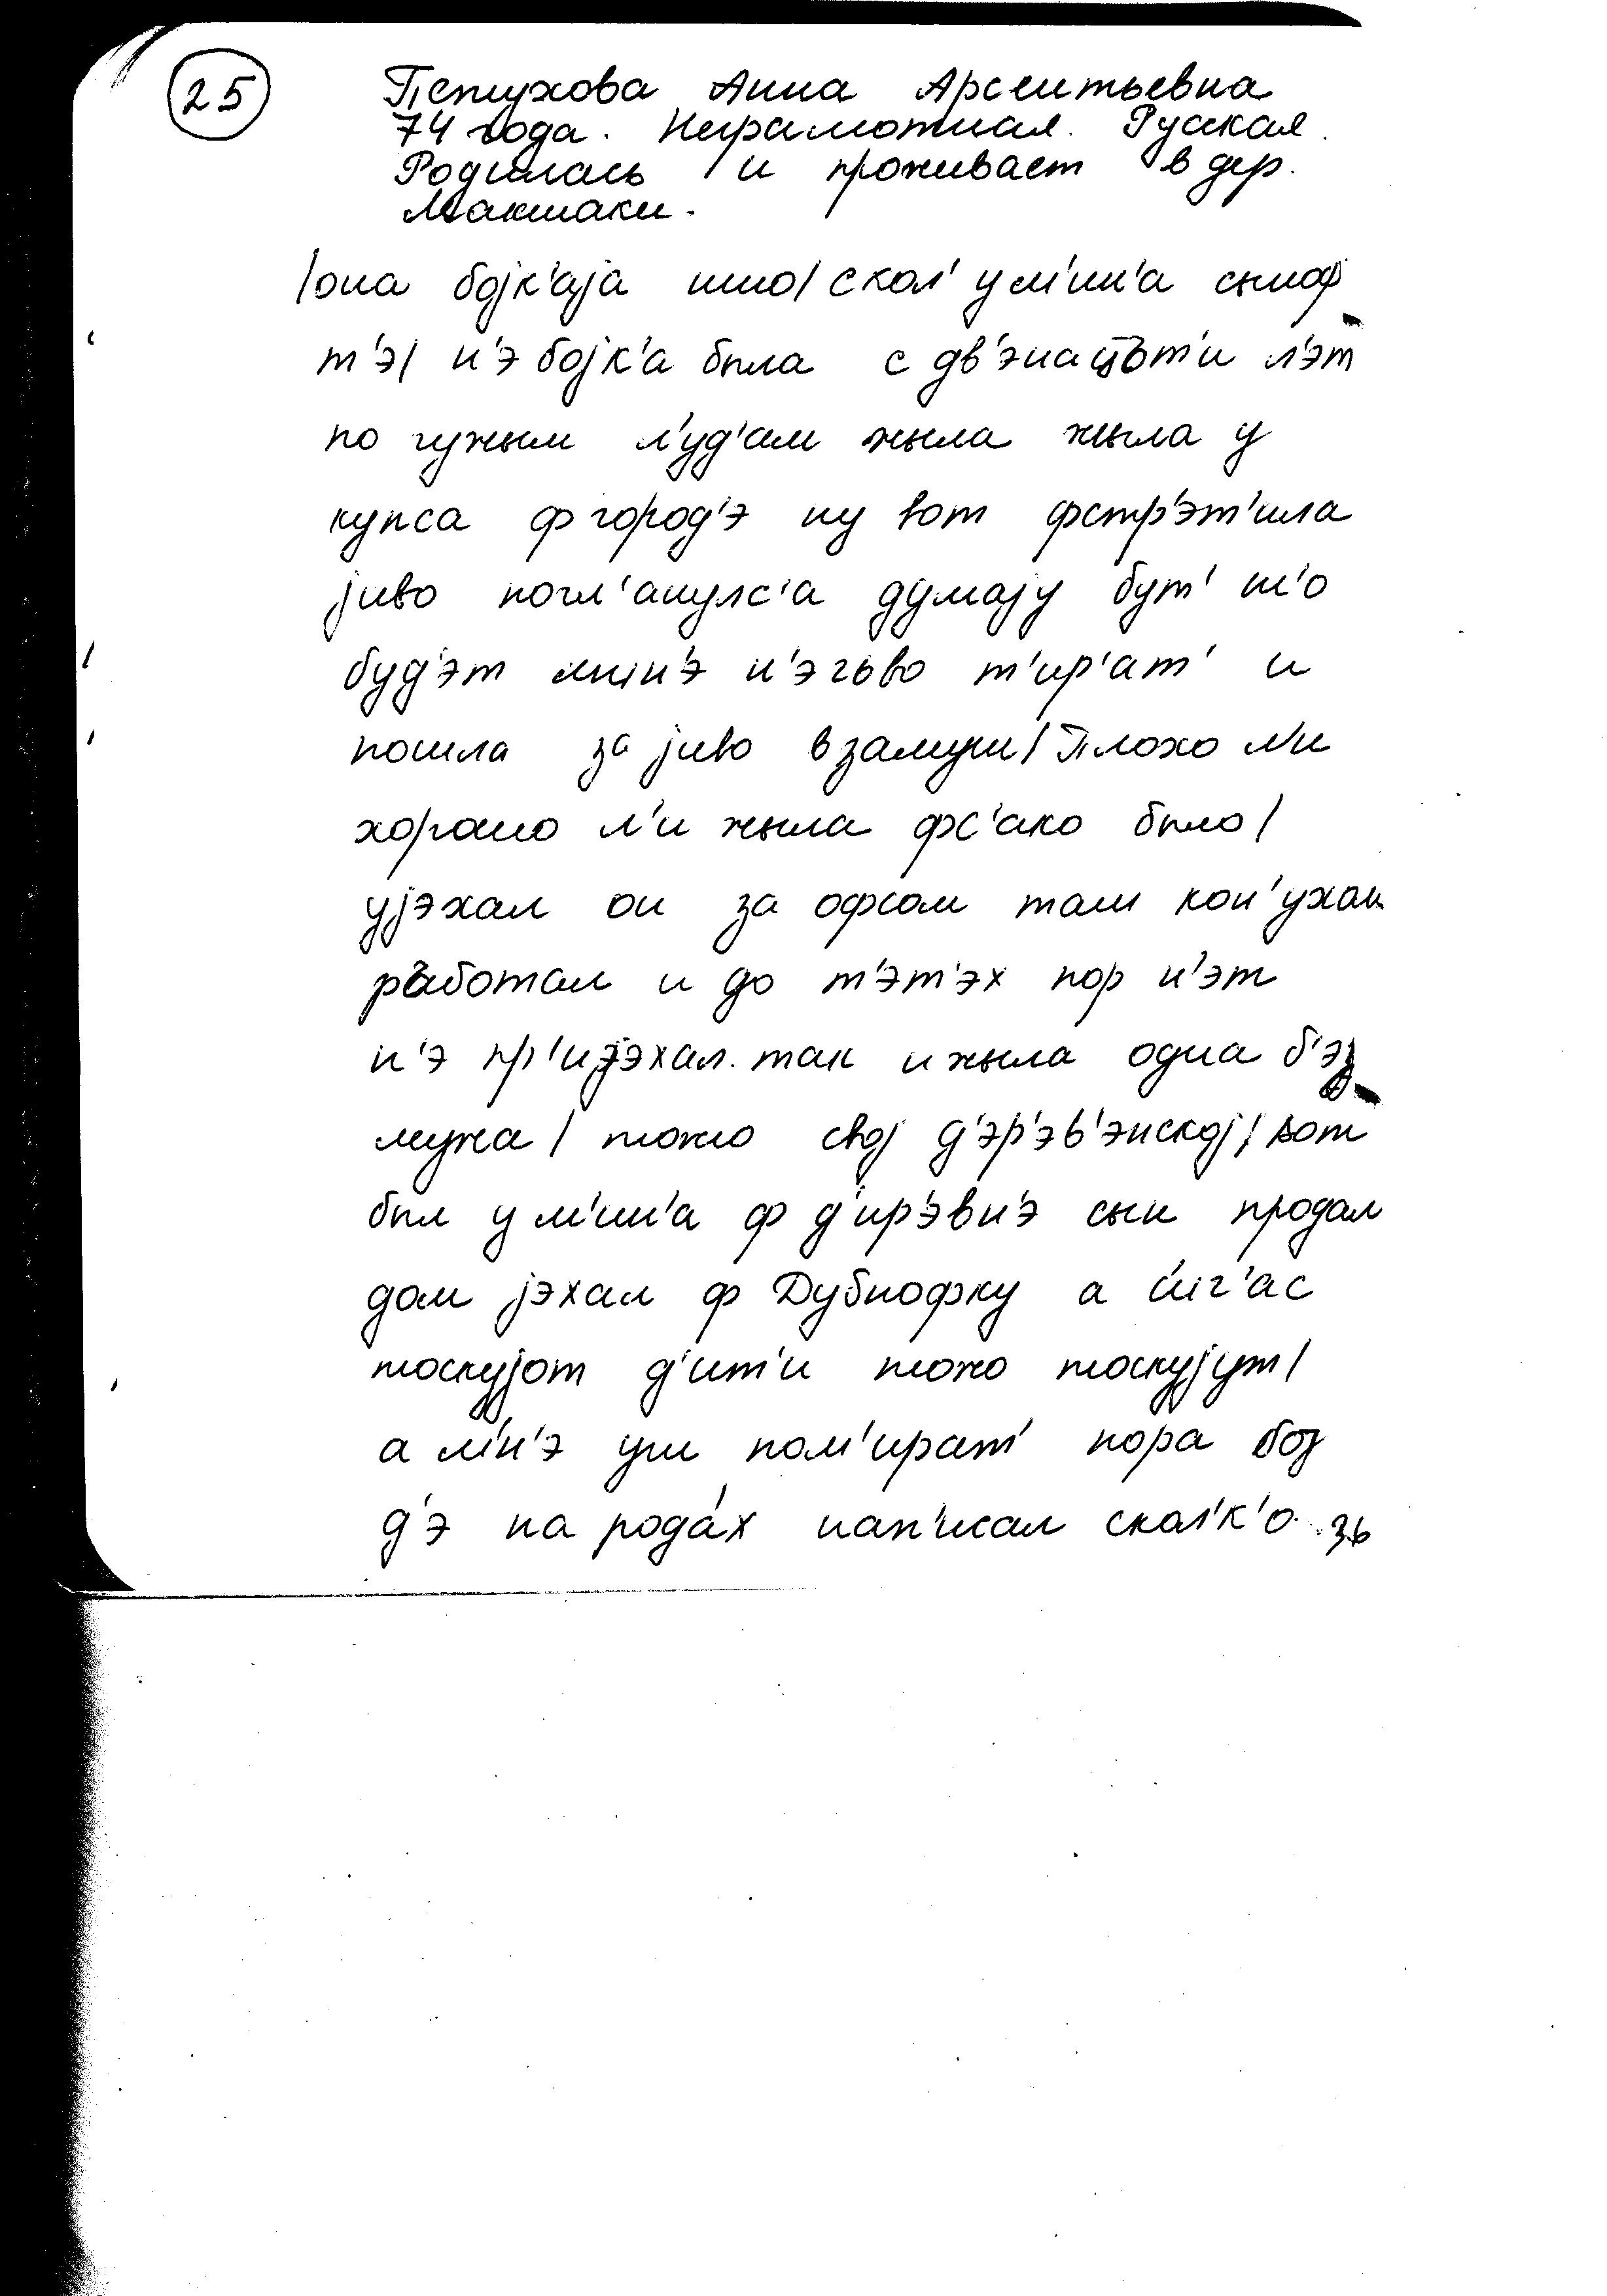 25
Петухова Анна Арсентьевна
74 года. Неграмотная. Руская.
Родилась и проживает в дер.
Макшаки.
/она бојк'аја шшо/ скол' у м'ин'а сыноф
т'э/ н'э бојк'а была с дв'энацът'и л'эт
по чужым л'уд'ам жыла жыла у
купса ф город'э ну вот фстр'эт'ила
јиво погл'анулс'а думају бут' ш'о
буд'эт мн'э н'эч'ово т'ир'ат' и
пошла за јиво взамуш/ Плохо л'и
хорошо л'и жыла фс'ако было/
ујэхал он за офсом там кон'ухам
работал и до т'эт'эх пор н'эт
н'э пр'ијэхал. так и жыла одна б'эз
мужа/ тожо свој д'эр'эв'энској/ вот
был у м'ин'а ф д'ир'эвн'э сын продал
дом јэхал ф Дубнофку а шч'ас
тоскујот д'ит'и тожо тоскујут/
а мн'э уш пом'ират' пора
д'э на рода́х нап'исал скол'к'о